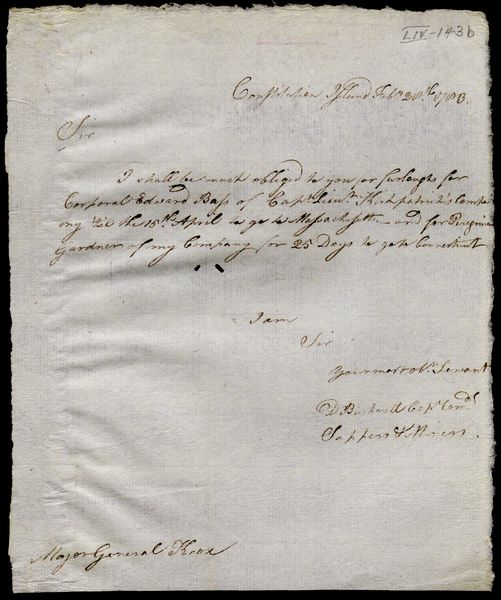 LIV-143b
Constitution Island Feby 28th 1783.
Sir
I shall be much obliged to you for furloughs for
Corporal Edward Bass of Capt Lieut. Kirkpatrick's Compa
ny 'til the 15th April to go to Massachusetts — and for Peregrine
Gardner of my Company for 25 Days to go to Connecticut
I am
Sir
Your most obt. Servant
D Bushnell Capt Comdt
Sappers & Miners.
Major General Knox